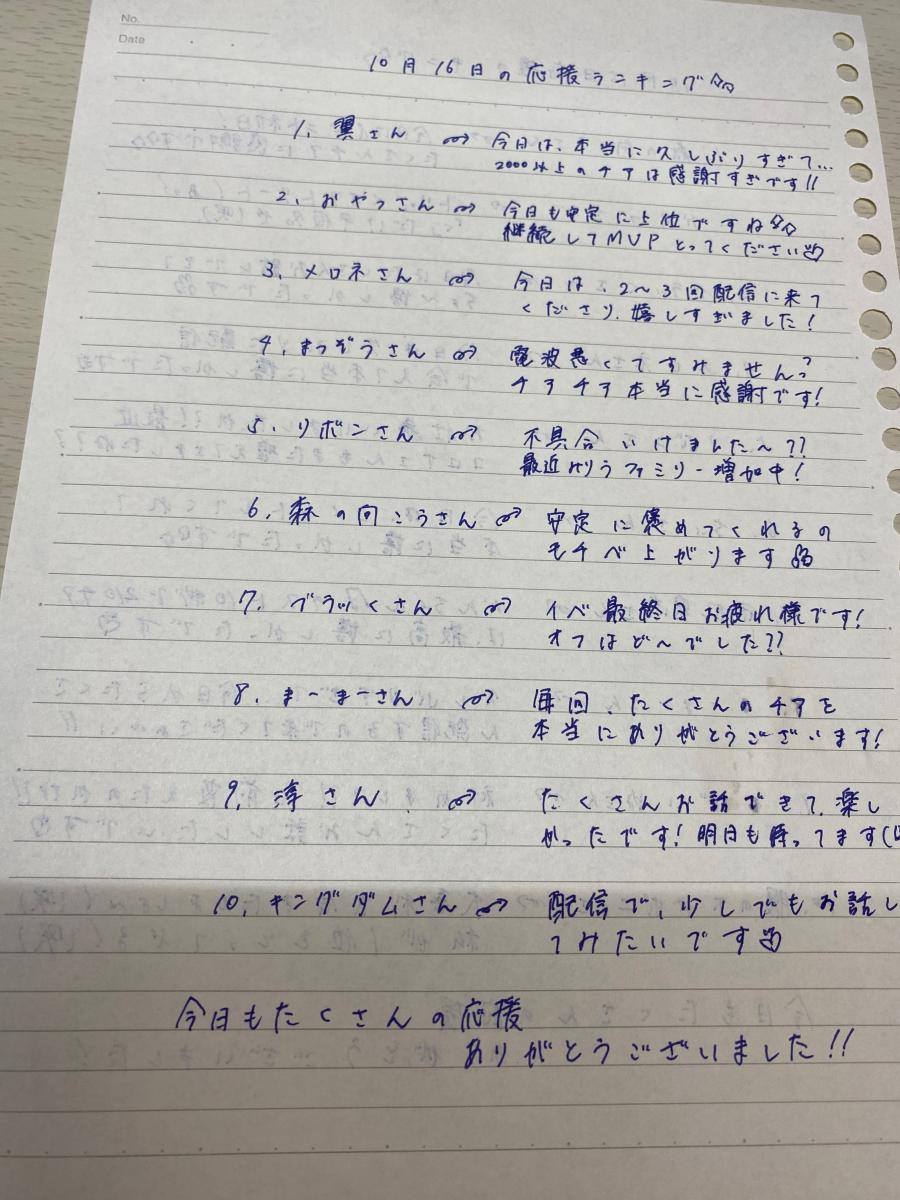 No.
Date
10月16日の応援ランキング
1. 翼さん ⇝ 今日は、本当に久しぶりすぎて...
2000以上のチアは感謝すぎです!!
2. おやっさん ⇝ 今日も安定に上位ですね
継続してMVPとってください
3. メロネさん ⇝ 今日は、2〜3回配信に来て
くださり、嬉しすぎました!
4. まっぞうさん ⇝ 電波悪くてすみません?
チアチア本当に感謝です!
5. リボンさん ⇝ 不具合いけました〜??
最近 ファミリー増加中!
6. 森の向こうさん ⇝ 安定に褒めてくれるの
モチベ上がります
7. ブラッくさん ⇝ イベ最終日お疲れ様です!
オフはど〜でした??
8. まーまーさん ⇝ 毎回、たくさんのチアを
本当にありがとうございます!
9. 淳さん ⇝ たくさんお話できて、楽し
かったです!明日も待ってます(
10. キングダムさん ⇝ 配信で、少しでもお話し
てみたいです
今日もたくさんの応援
ありがとうございました!!